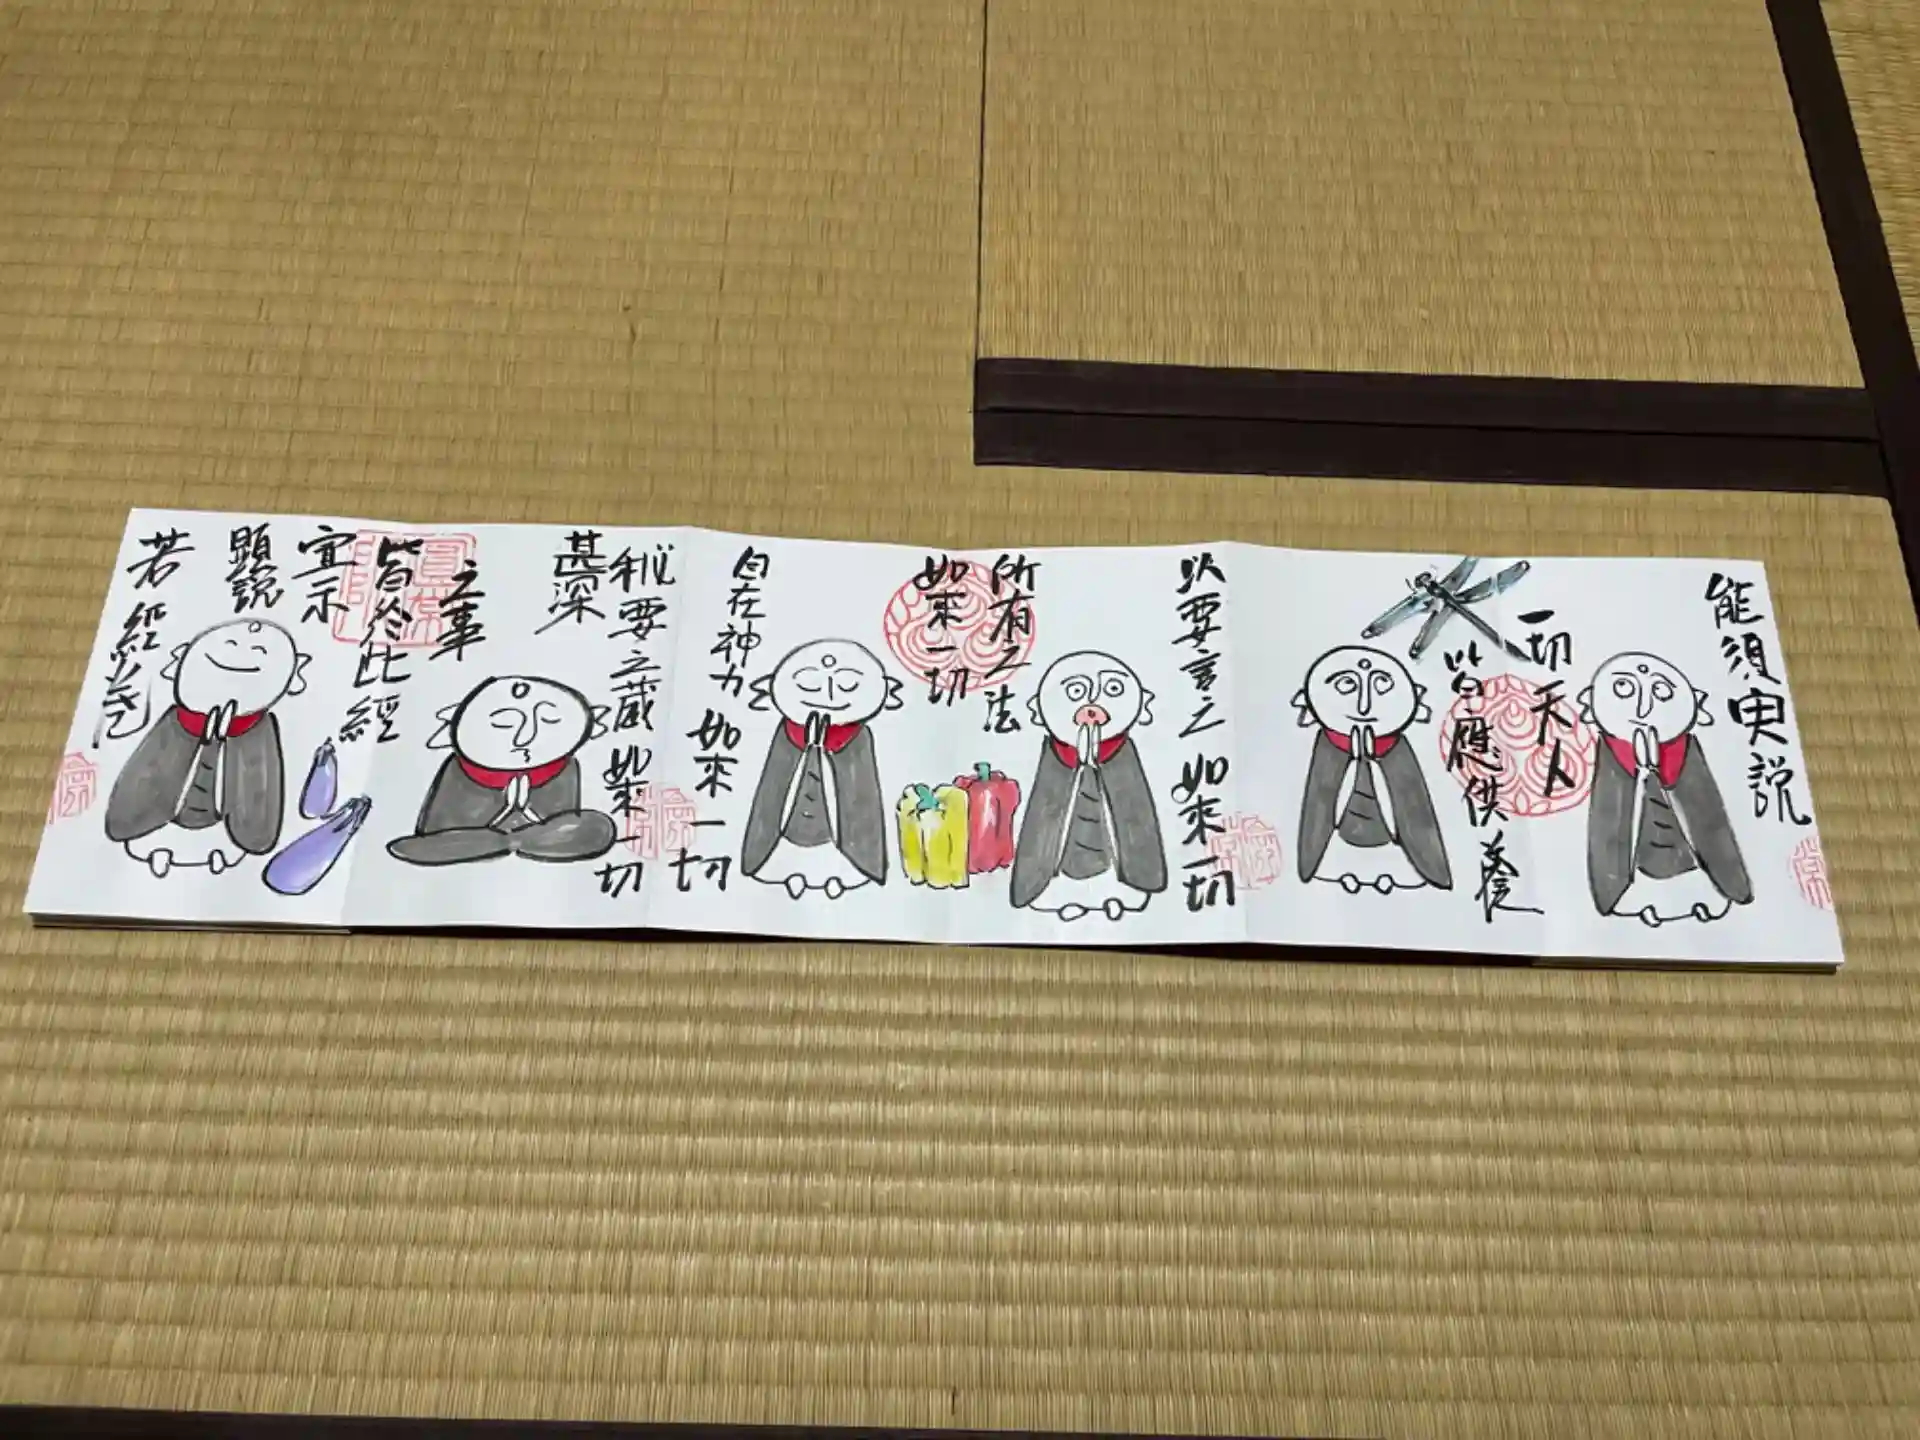 能須臾説
一切天人
皆應供養
以要言之 如來一切
所有之法
如來一切
自在神力 如來一切
秘要之蔵 如來一切
甚深
之事
皆於此經
宣示
顕説
若